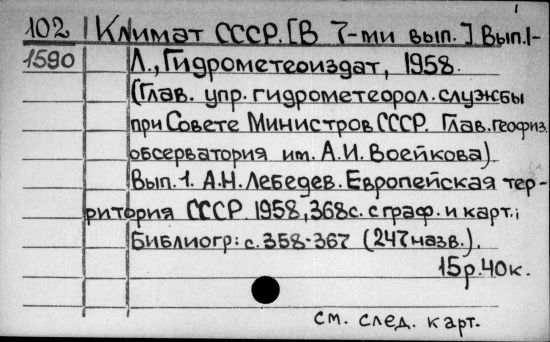 1
102 Климат СССР. [В 7-ми вып.] Вып. 1-
1590 Л., Гидрометеоиздат, 1958.
(Глав. упр. гидрометеорол. службы
при Совете Министров СССР. Глав. геофиз.
обсерватория им. А.И. Воейкова).
Вып. 1. А.Н. Лебедев. Европейская тер-
ритория СССР. 1958, 368 с. с граф. и карт.;
Библиогр: с. 358-367 (247 назв.).
15 р. 40 к.
см. след. карт.